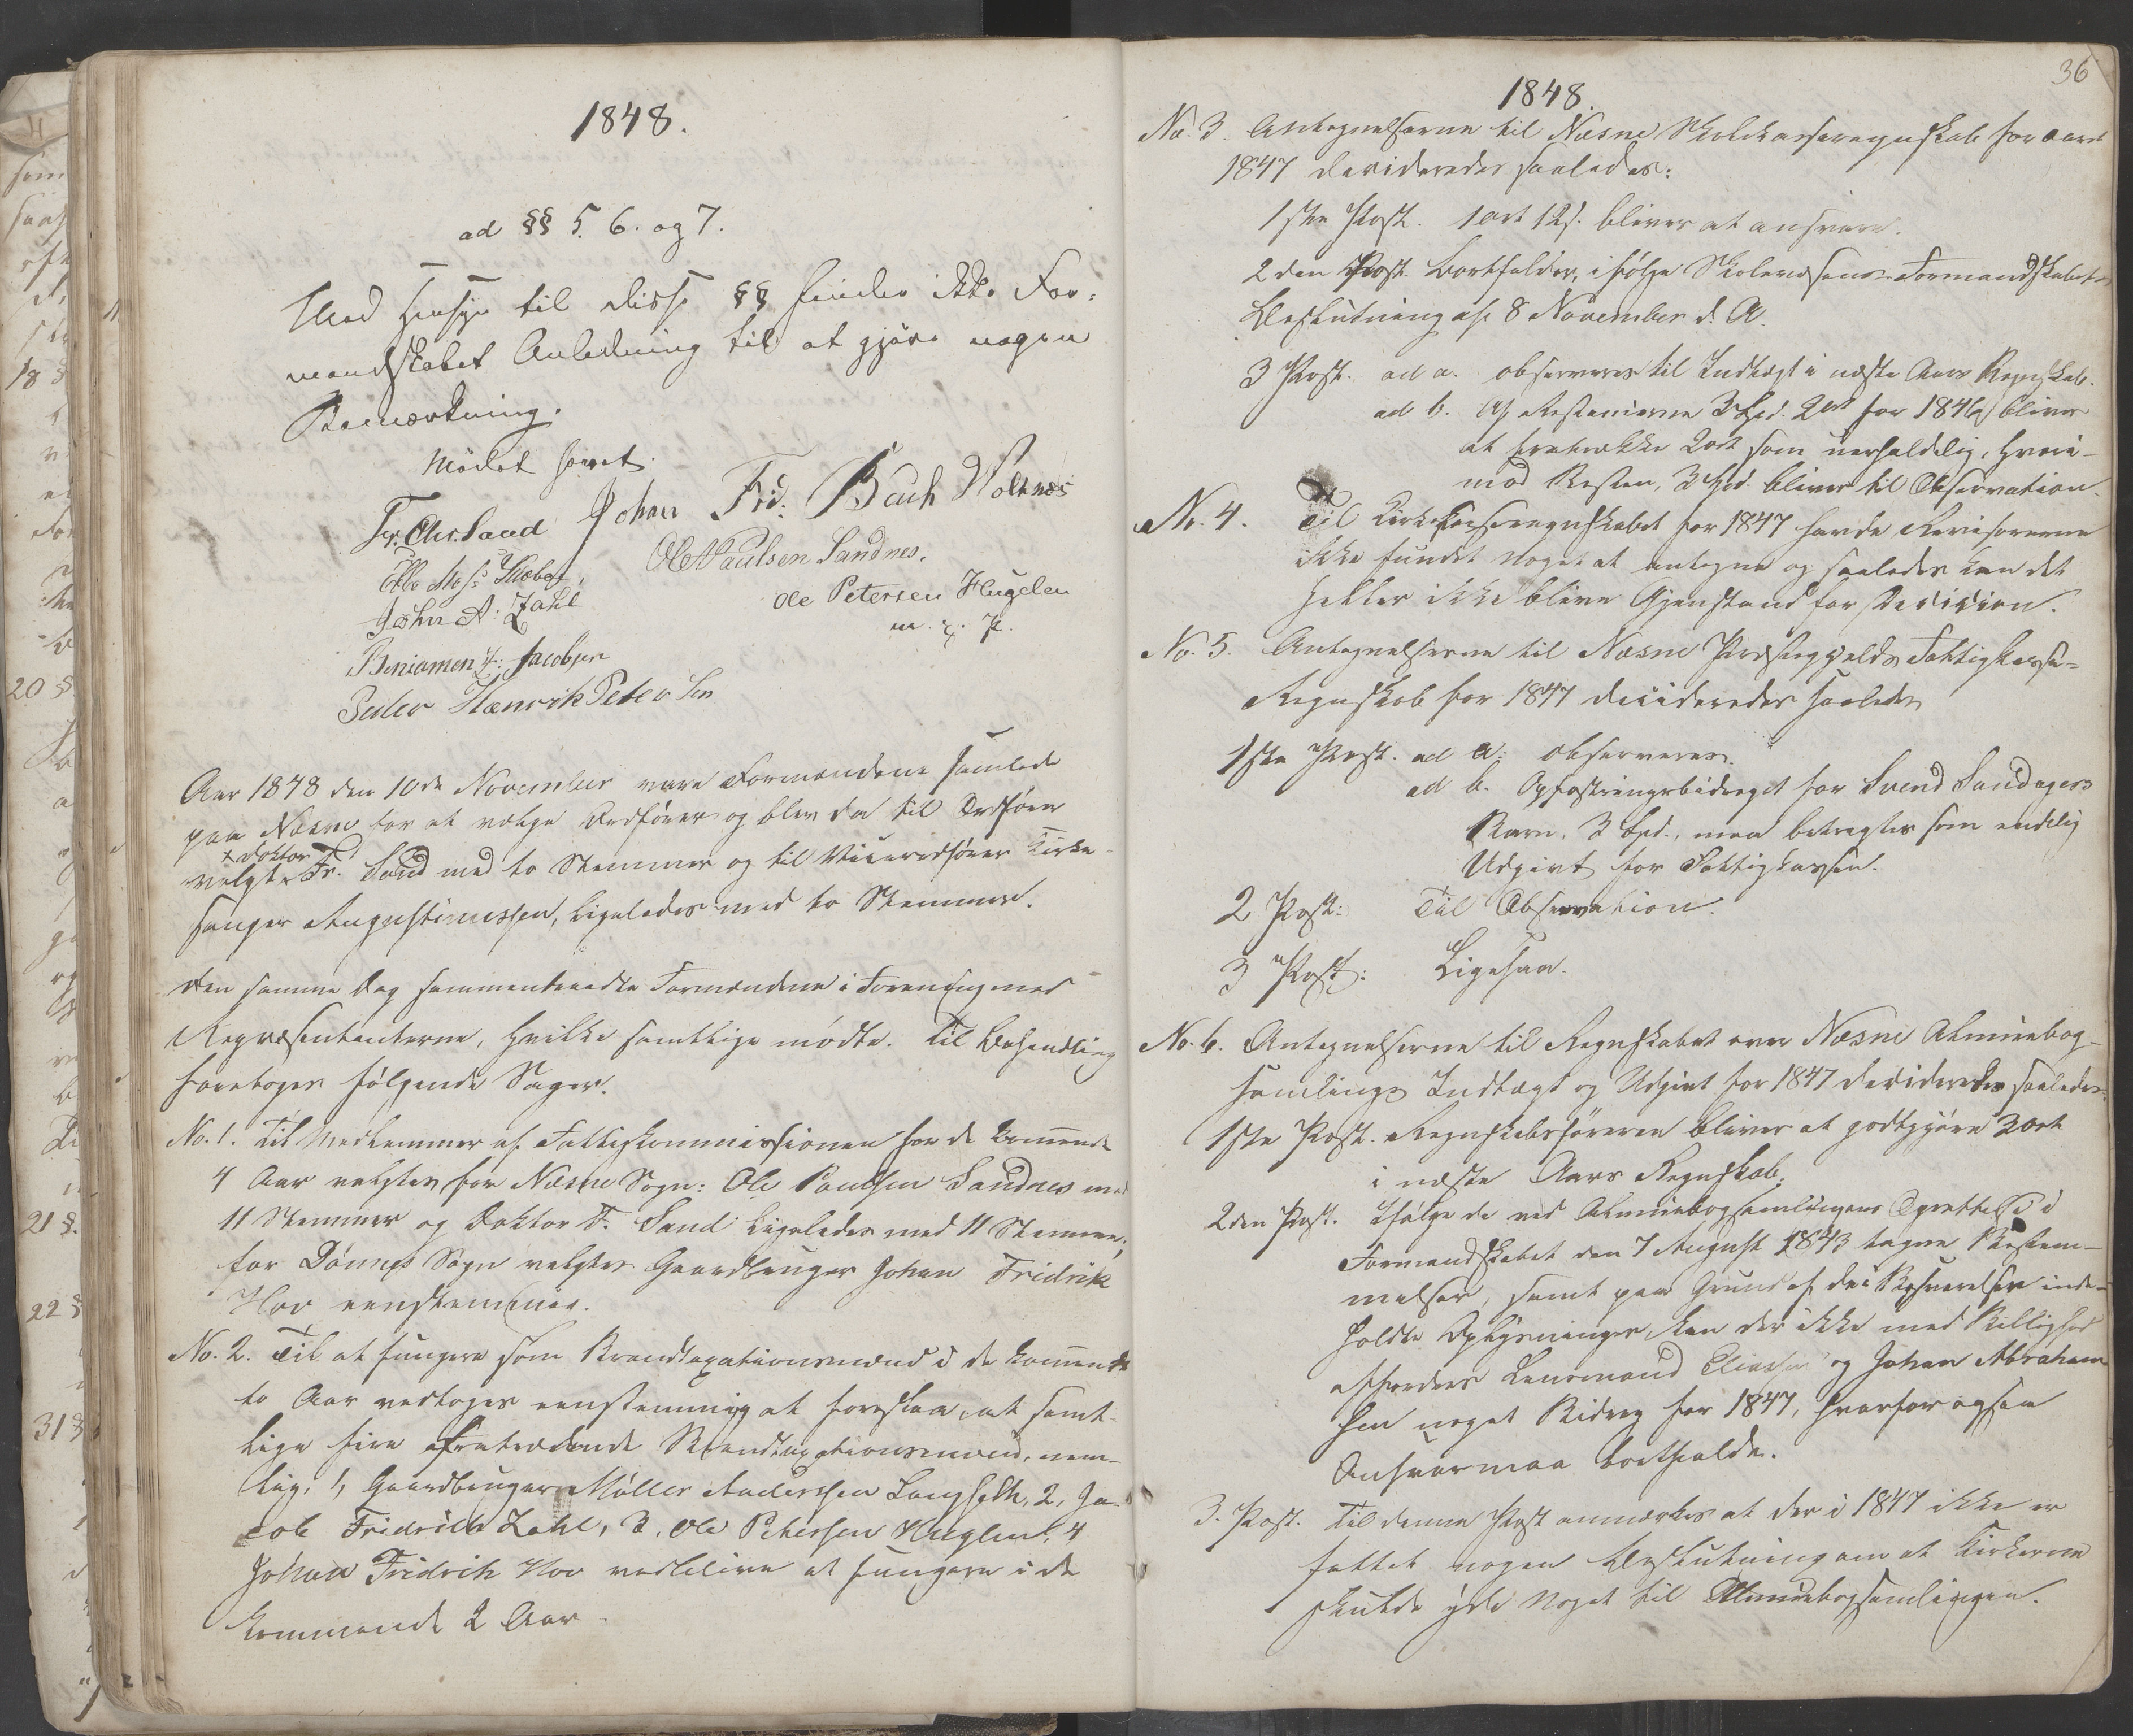 1848.
ad §§ 5. 6. og 7.
Med Hensyn til disse §§ finder ikke For-
mandskabet Anledning til at gjøre nogen
Bemærkning.
Mødet hævet.
Fr. Chr. Sand Johan Frid: Bach Holmnes
Ole Paulsen Sandnes.
John A. Zahl
Ole Petersen Huglen
m. p. P.
Beniamen F: Jacobsen
Peder Hænrik Peter Sen
Aar 1848 den 10de November vare Formændene samlede
paa Næsne for at vælge Ordfører og blev da til Ordfører
× Doktor
valgt × Fr. Sand med to Stemmer og til Viceordfører Kirke-
sanger Augustinussen, ligeledes med to Stemmer.
Den samme Dag sammentraadte Formændene i Forening med
Repræsentanterne, hvilke samtlige mødte. Til Behandling
foretoges følgende Sager.
No. 1. Til Medlemmer af Fattigkommissionen for de kommende
4 Aar valgtes for Næsne Sogn: Ole Paulsen Sandnes med
11 Stemmer og Doktor F. Sand ligeledes med 11 Stemmer;
for Dønnes Sogn valgtes Gaardbruger Johan Fridrik
Hov eenstemmig.
No. 2. Til at fungere som Brandtaxationsmænd i de kommende
to Aar vedtoges eenstemmig at foreslaa, at samt-
lige fire fratrædende Brandtaxationsmænd, nem-
lig, 1, Gaardbruger Møller Anderssen Langseth, 2, Ja-
cob Fridrik Zahl, 3, Ole Peterssen Huglen, 4
Johan Fridrik Hov vedblive at fungere i de
kommende 2 Aar.
36
1848.
No. 3 Antegnelserne til Næsne Skolekasseregnskab for Aaret
1847 decideredes saaledes:
1ste Post. 1 ort 12 s. bliver at ansvare.
2den Post. Bortfalder, ifølge Skolevæsens-Formandskabets
Beslutning af 8 November d. A.
3 Post. ad a. observeres til Indtægt i næste Aars Regnskab.
ad b. Af Restancerne 3 Spd. 2 ort for 1846 bliver
at fratrække 2 ort som uerholdelig, hvori-
mod Resten, 3 Spd. bliver til Observation.
No. 4. Til Kirkekasseregnskabet for 1847 havde Revisorerne
ikke fundet noget at antegne og saaledes kan det
heller ikke blive Gjenstand for Decision.
No. 5. Antegnelserne til Næsne Præstegjelds Fattigkasse-
Regnskab for 1847 decideredes saaledes
1ste Post. ad a: observeres.
ad b. Opfostringsbidraget for Svend Sandagers
Barn, 3 Spd., maa betragtes som endelig
Udgivt for Fattigkassen.
2 Post: Til Observation.
3 Post: Ligesaa.
No. 6. Antegnelserne til Regnskabet over Næsne Almuebog-
samlings Indtægt og Udgivt for 1847 decideredes saaledes:
1ste Post. Regnskabsføreren bliver at godtgjøre 3 ort
i næste Aars Regnskab.
2den Post. Ifølge de ved Almuebogsamlingens Oprettelse i
Formandskabet den 7 August 1843 tagne Bestem-
melser, samt paa Grund af de i Besvarelsen inde-
holdte Oplysninger, kan der ikke med Billighed
affordres Lensmand Eliassen og Johan Abraham-
sen noget Bidrag for 1847, hvorfor ogsaa
Ansvar maa bortfalde.
3. Post. Til denne Post anmærkes at der i 1847 ikke er
fattet nogen Beslutning om at Kirkerne
skulde yde Noget til Almuebogsamlingen.